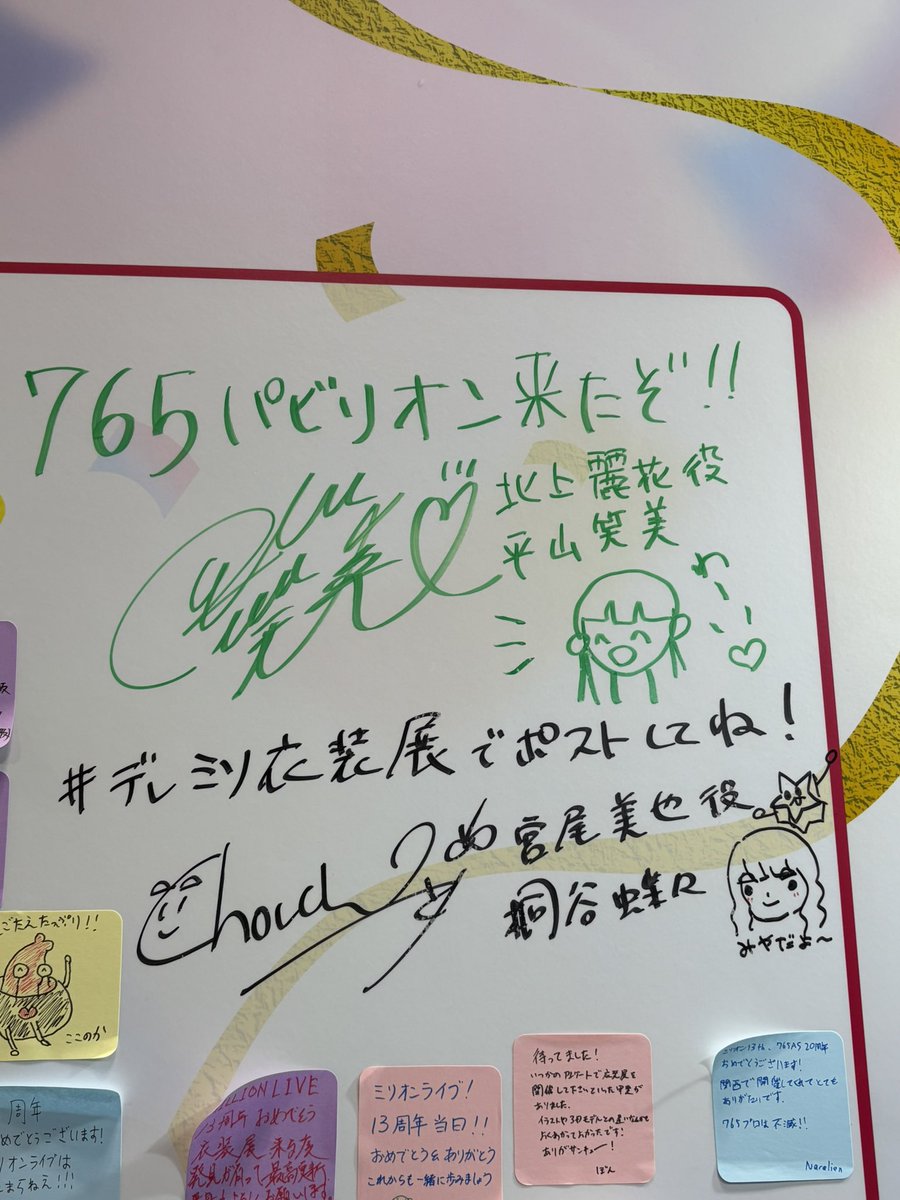 765パビリオン来たぞ!!
北上麗花役
平山笑美
わーい
#デレミリ衣装展でポストしてね!
宮尾美也役
桐谷蝶々
みやだよ~
ごたえたっぷり!!
ここのか
周年
めでとうございます!
リオンライブは
まらねえ!!!
LLION LIVE
13周年おめでとう
衣装展
発見が有って最高
ミリオンライブ!
13周年当日!!
おめでとう&ありがとう
これからも一緒に歩みましょう
待ってました!
いつかのアンケートで衣装展を
開催して下さいといった
がありました。
イラストや3Dモデルとの違いなども
よくわかっておもろかったです!
ありがサンキュー!
ぽん
ミリオン13th、765AS 20周年
おめでとうございます!
関西で開催してくれてとても
ありがたいです。
765プロは不滅!!
Narelien